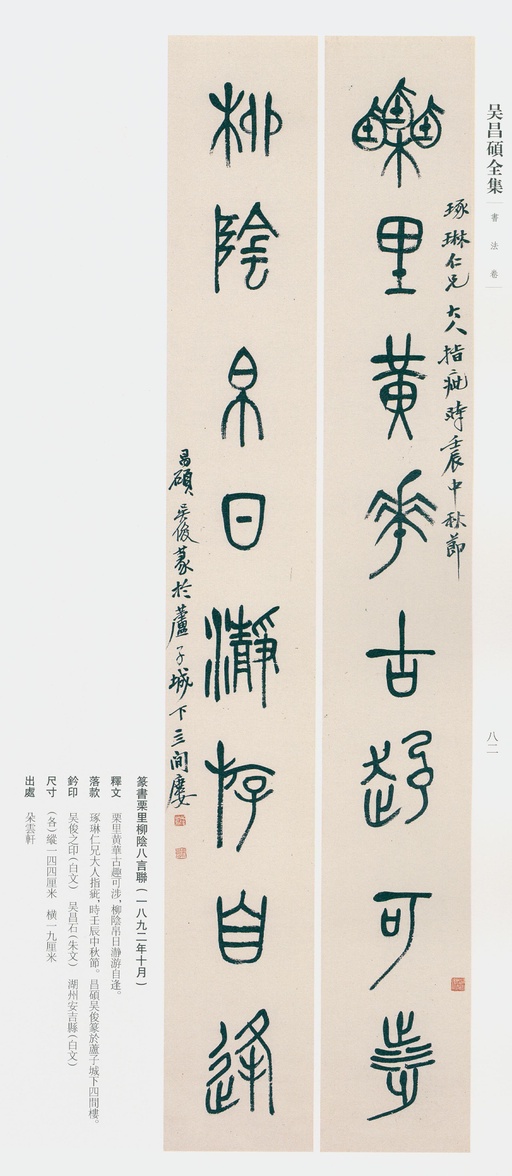 吴昌碩全集
書法卷
八二
琢琳仁兄大人指疵時壬辰中秋節
栗里黄華古趣可涉
柳陰帛日瀞游自逢
昌碩吴俊篆於蘆子城下三間廔
篆書栗里柳陰八言聯（一八九二年十月）
釋文　栗里黄華古趣可涉，柳陰帛日瀞游自逢。
落款　琢琳仁兄大人指疵，時壬辰中秋節。昌碩吴俊篆於蘆子城下四間樓。
鈐印　吴俊之印（白文）　吴昌石（朱文）　湖州安吉縣（白文）
尺寸　（各）縱一四四厘米　横一九厘米
出處　朵雲軒